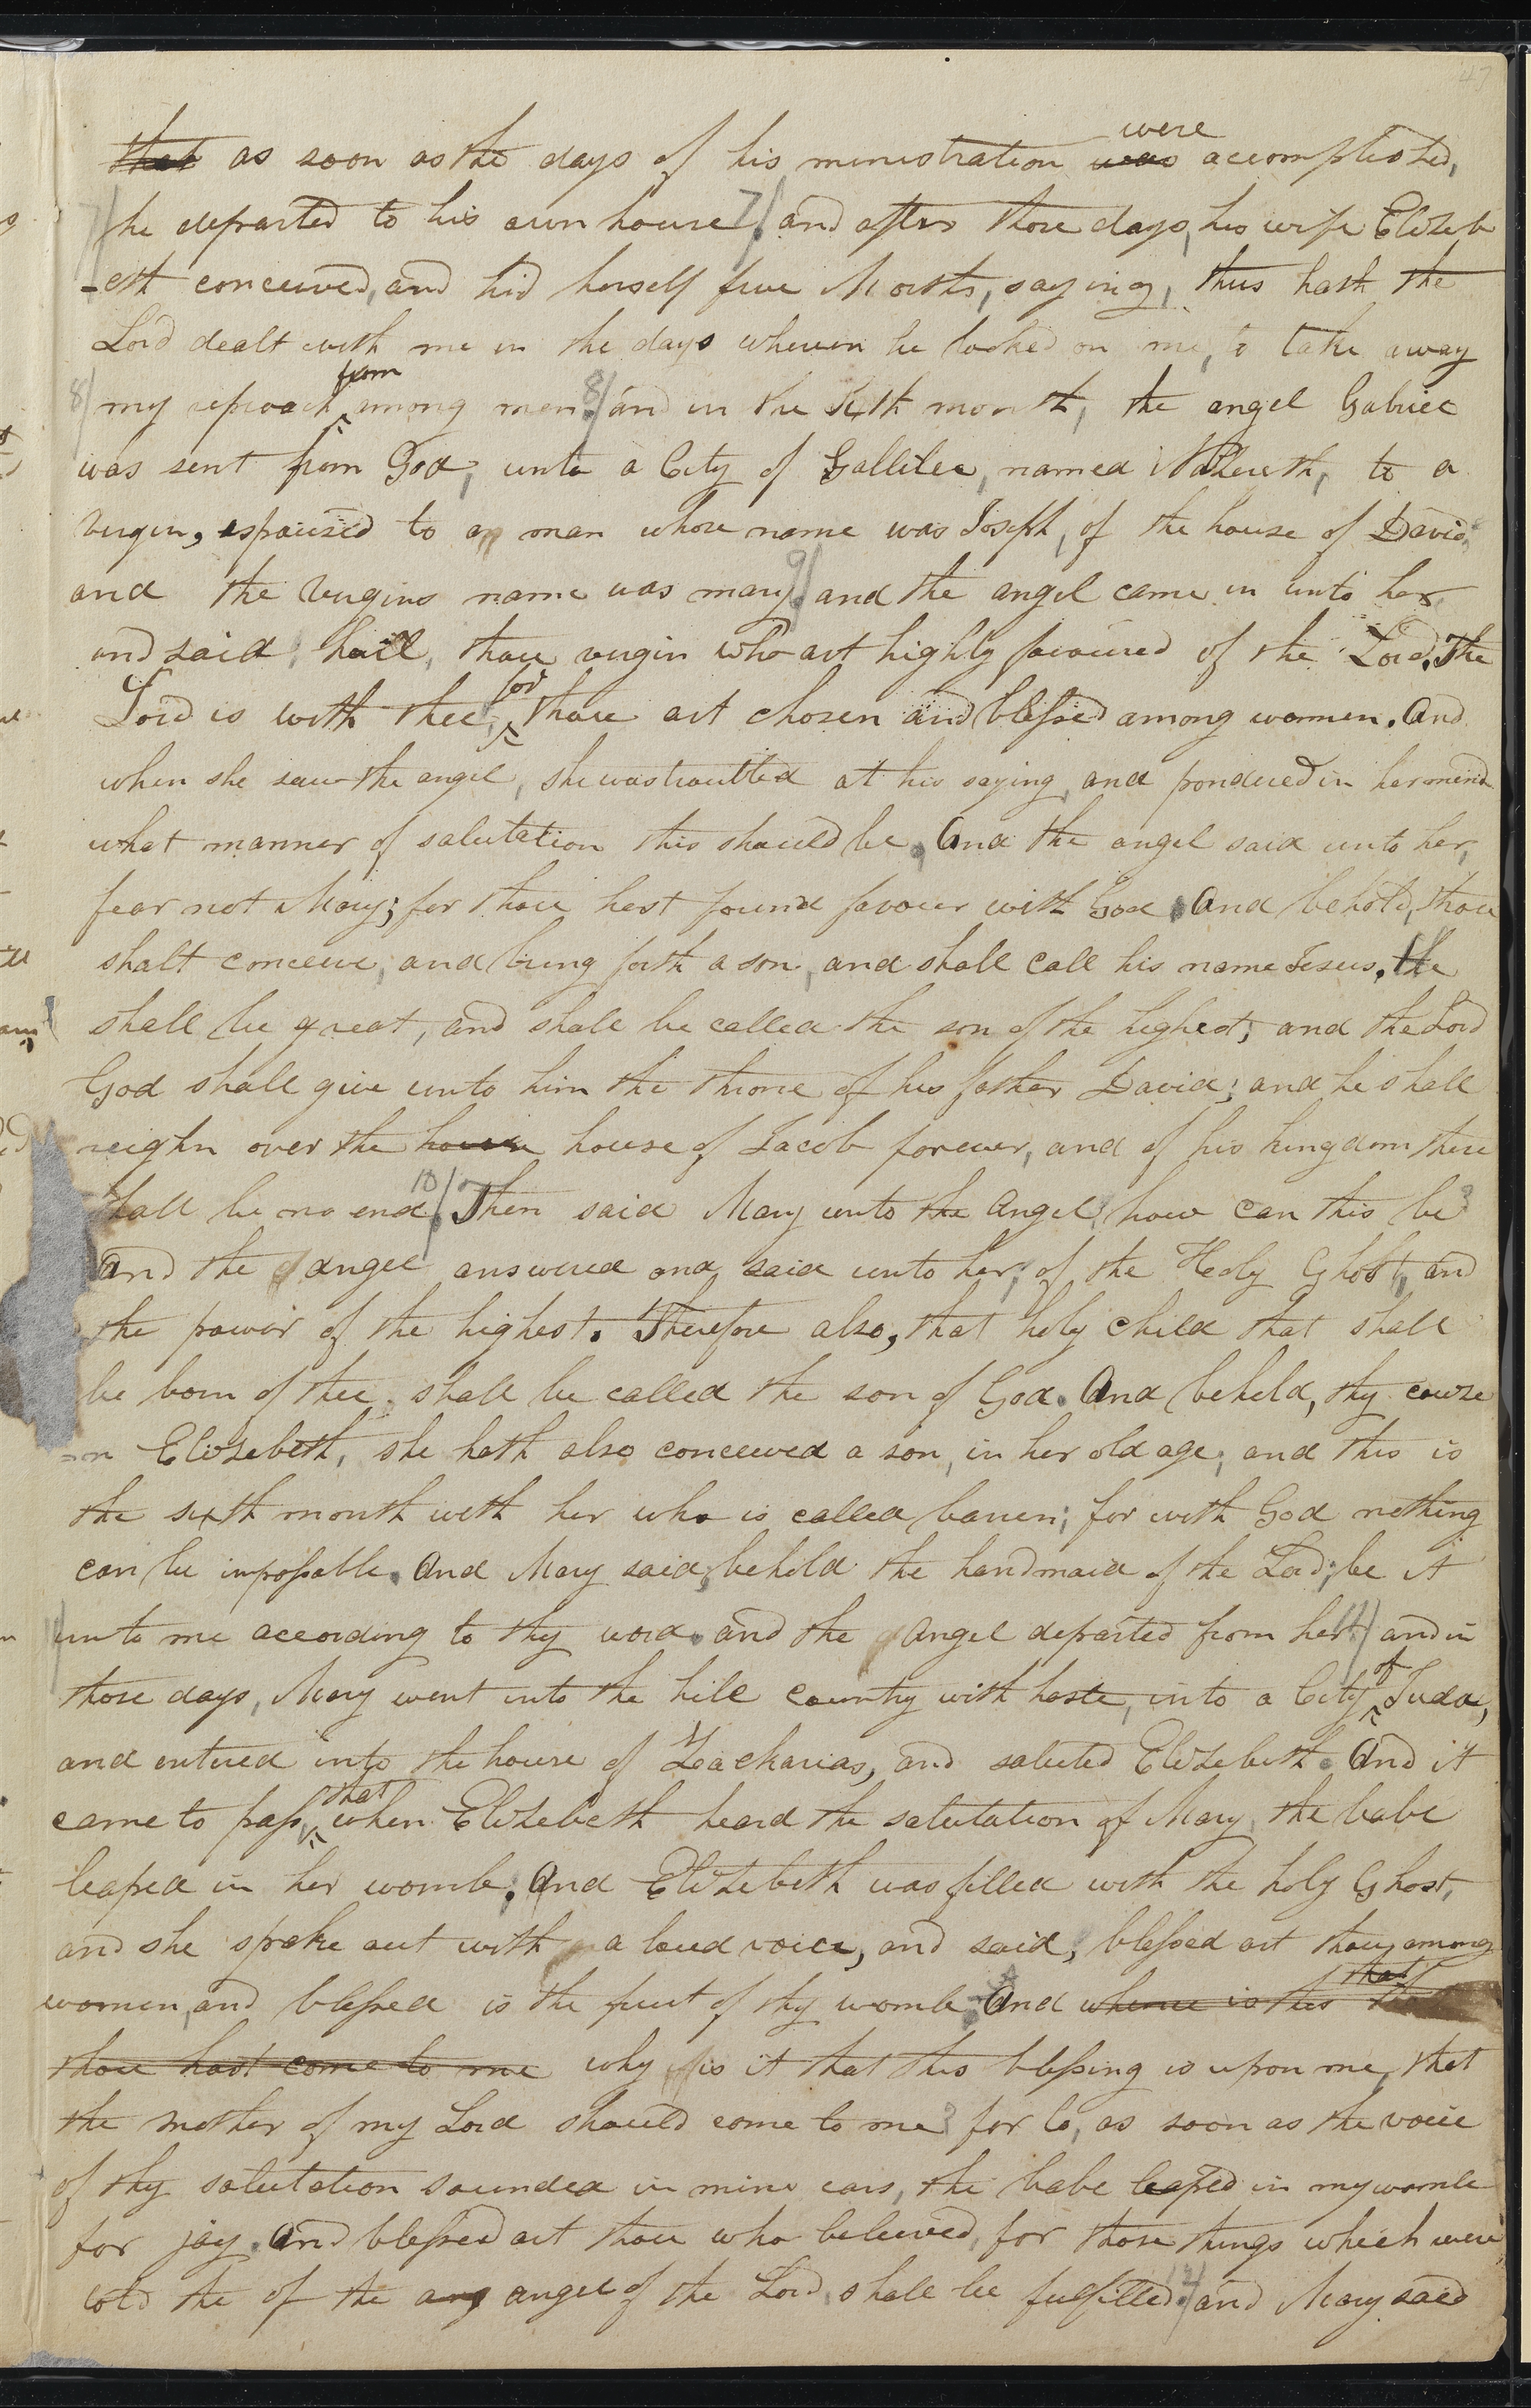 47
that as soon as the days of his ministration were was accomplished,
7/ he departed to his own house 7/ and after those days, his wife Elizeb
-eth conceived, and hid herself five Months, saying, thus hath the
Lord dealt with me in the days wherein he looked on me, to take away
8/ my reproach from among men. 8/ and in the sixth month, the angel Gabriel
was sent from God, unto a City of Gallilee, named Nazereth, to a
virgin, espoused to a man whose name was Joseph, of the house of David,
and the virgins name was mary. 9/ and the angel came in unto her
and said, hail, thou virgin who art highly favoured of the Lord. The
Lord is with thee, for thou art chosen and blessed among women. And
when she saw the angel, she was troubled at his saying, and pondered in her mind
what manner of salutation this should be. And the angel said unto her,
fear not Mary; for thou hast found favour with God. And behold, thou
shalt conceive, and bring forth a son, and shall call his name Jesus. He
shall be great, and shall be called the son of the highest; and the Lord
God shall give unto him the throne of his father David; and he shall
reighn over the house house of Jacob forever, and of his kingdom there
shall be no end. 10/ Then said Mary unto the angel, how can this be?
And the angel answered and said unto her, of the Holy Ghost, and
the power of the highest. Therefore also, that holy child that shall
be born of thee, shall be called the son of God. And behold, thy couze
-on Elizebeth, she hath also conceived a son, in her old age; and this is
the sixth month with her who is called barren; for with God nothing
can be impossable. And Mary said, behold the handmaid of the Lord; be it
11/ unto me according to thy word. and the angel departed from her. 11/ and in
those days, Mary went into the hill country with haste, into a City of Juda,
and entered into the house of Zacharias, and saluted Elizebeth. And it
came to pass, that when Elizebeth heard the salutation of Mary, the babe
leaped in her womb. And Elizebeth was filled with the holy Ghost,
and she spoke out with a loud voice, and said, blessed art thou among
women, and blessed is the fruit of thy womb. And whence is this that
thou hast come to me why is it that this blessing is upon me, that
the mother of my Lord should come to me? for lo, as soon as the voice
of thy salutation sounded in mine ears, the babe leaped in my womb
for joy. And blessed art thou who beleived, for those things which were
told the of the ang angel of the Lord, shall be fulfilled. 12/ and Mary said